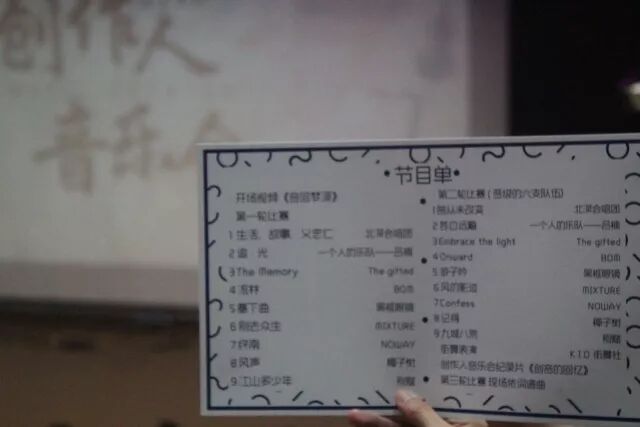 创作人
音乐会
•节目单•
开场视频《音回梦溯》
第一轮比赛
1 生活、故事、又恋仁
2 追 光 一个人的乐队——吕楠
3 The Memory The gifted
4 冻林 BOM
5 塞下曲 黑框眼镜
6 别

北菜合唱团
MIXTURE
7 终南 NOWAY
8 风声 椰子树
9 江山多少年
第二轮比赛（晋级的六支队伍）
1 曾从未改变 北菜合唱团
一个人的乐队——吕楠
3 Embrace the light The gifted
4 Onward BOM
5 游子吟 黑框眼镜
6 风的影迹 MIXTURE
7 Confess NOWAY
8 记得 椰子树
9 九城八测
街舞表演 K.I.D 街舞社
创作人音乐会纪录片《创音的回忆》
第三轮比赛 现场依词谱曲